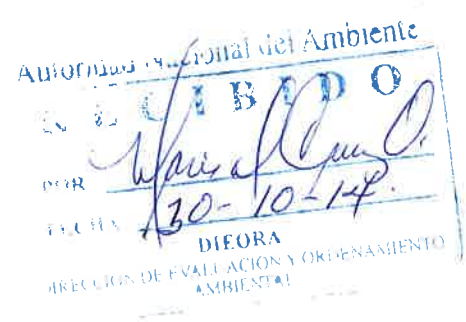 Autoridad Nacional del Ambiente
RECIBIDO
POR
FECHA 30-10-14.
DIEORA
DIRECCION DE EVALUACION Y ORDENAMIENTO
AMBIENTAL